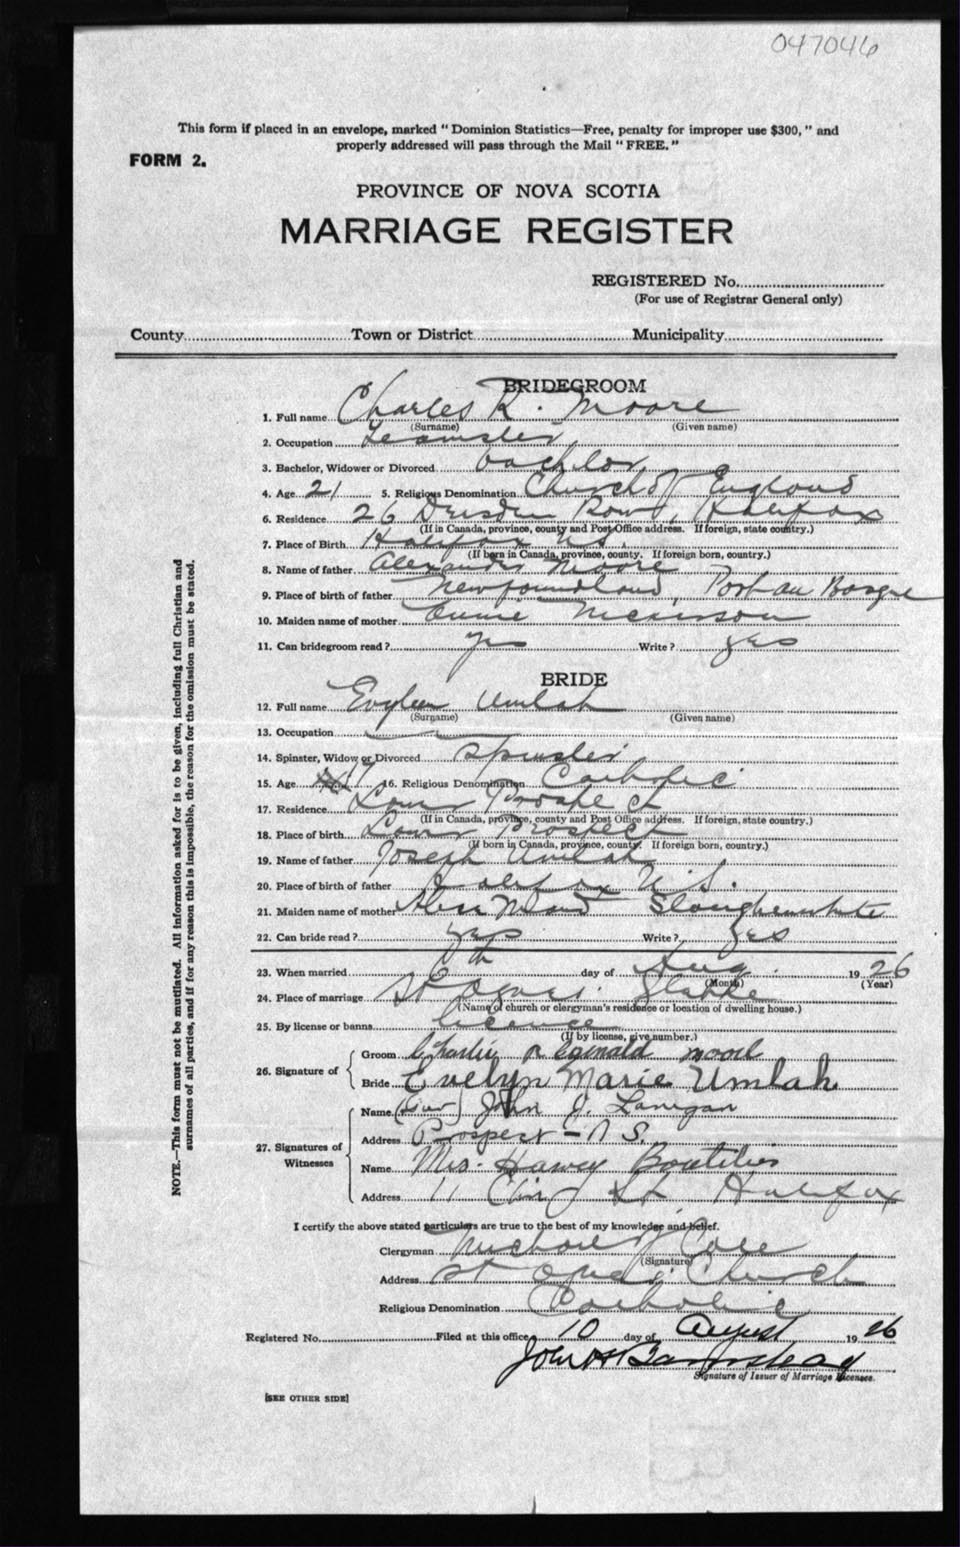 047046
This form if placed in an envelope, marked "Dominion Statistics—Free, penalty for improper use $300," and
properly addressed will pass through the Mail "FREE."
FORM 2.
PROVINCE OF NOVA SCOTIA
MARRIAGE REGISTER
REGISTERED No.
(For use of Registrar General only)
County Town or District Municipality
BRIDEGROOM
1. Full name Charles R. Moore
(Surname) (Given name)
2. Occupation Teamster
3. Bachelor, Widower or Divorced bachelor
4. Age 21 5. Religious Denomination Church of England
6. Residence 26 Dresden Row, Halifax
(If in Canada, province, county and Post Office address. If foreign, state country.)
7. Place of Birth Halifax N.S.
(If born in Canada, province, county. If foreign born, country.)
8. Name of father Alexander Moore
9. Place of birth of father Newfoundland, Port au Basque
10. Maiden name of mother Annie
11. Can bridegroom read? yes Write? yes
BRIDE
12. Full name Evylen Umlah
(Surname) (Given name)
13. Occupation
14. Spinster, Widow or Divorced Spinster
15. Age 17 16. Religious Denomination Catholic
17. Residence Prospect
(If in Canada, province, county and Post Office address. If foreign, state country.)
18. Place of birth Prospect
(If born in Canada, province, county. If foreign born, country.)
19. Name of father Joseph Umlah
20. Place of birth of father Halifax N.S.
21. Maiden name of mother Slaughenwhite
22. Can bride read? yes Write? yes
23. When married day of Aug. 1926
(Month) (Year)
24. Place of marriage St Agnes.
(Name of church or clergyman's residence or location of dwelling house.)
25. By license or banns licence
(If by license, give number.)
26. Signature of
Groom Charlie Reginald Moore
Bride Evelyn Marie Umlah
27. Signatures of Witnesses
Name John J. Lanigan
Address Prospect - N S.
Name Mrs. Harvey Boutilier
Address 11 St. Halifax
I certify the above stated particulars are true to the best of my knowledge and belief.
Clergyman
(Signature)
Address St Agnes Church
Religious Denomination Catholic
Registered No. Filed at this office 10 day of August 1926
John H Barnstead
Signature of Issuer of Marriage Licenses.
[SEE OTHER SIDE]
NOTE.—This form must not be mutilated. All information asked for is to be given, including full Christian and
surnames of all parties, and if for any reason this is impossible, the reason for the omission must be stated.